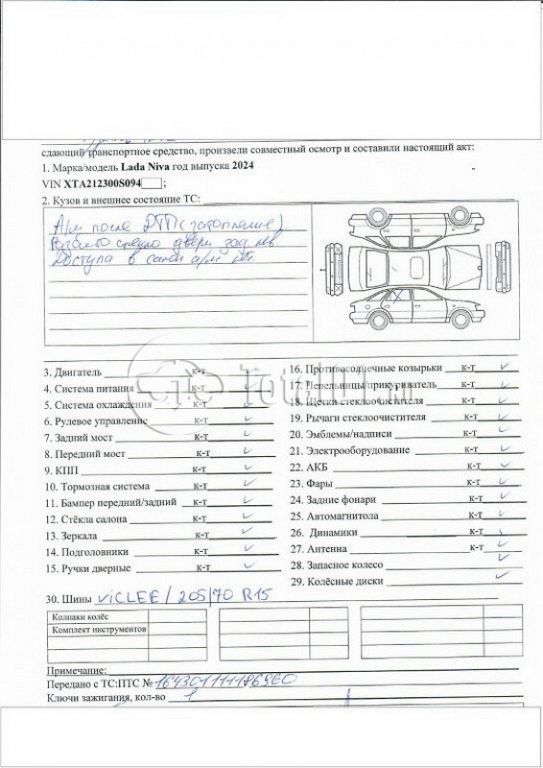 сдающий транспортное средство, произвели совместный осмотр и составили настоящий акт:
1. Марка/модель Lada Niva год выпуска 2024
VIN XTA212300S094 ;
2. Кузов и внешнее состояние ТС:
А/м после ДТП (затопление)
Разбито стекло двери зад. лев.
Доступа в салон а/м нет.
3. Двигатель к-т
4. Система питания к-т
5. Система охлаждения к-т
6. Рулевое управление к-т
7. Задний мост к-т
8. Передний мост к-т
9. КПП к-т
10. Тормозная система к-т
11. Бампер передний/задний к-т
12. Стёкла салона к-т
13. Зеркала к-т
14. Подголовники к-т
15. Ручки дверные к-т
16. Противосолнечные козырьки к-т
17. Пепельницы/прикуриватель к-т
18. Щетки стеклоочистителя к-т
19. Рычаги стеклоочистителя к-т
20. Эмблемы/надписи к-т
21. Электрооборудование к-т
22. АКБ к-т
23. Фары к-т
24. Задние фонари к-т
25. Автомагнитола к-т
26. Динамики к-т
27. Антенна к-т
28. Запасное колесо
29. Колёсные диски
30. Шины ViCLEE/205/70 R15
Колпаки колёс
Комплект инструментов
Примечание:
Передано с ТС:ПТС № 164301111186960
Ключи зажигания, кол-во 1